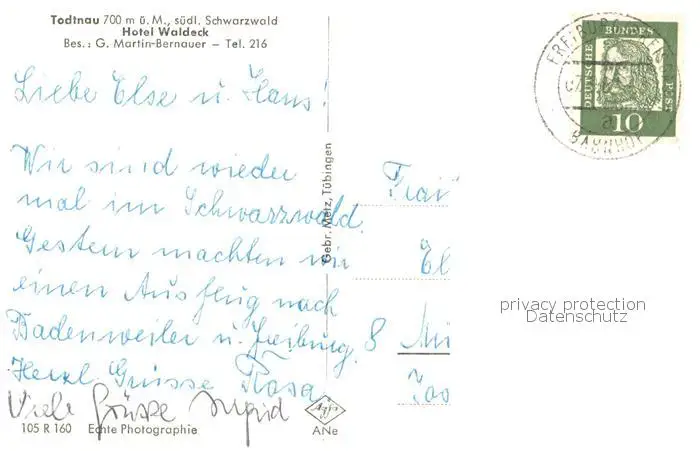 Todtnau 700 m ü. M., südl. Schwarzwald
Hotel Waldeck
Bes.: G. Martin-Bernauer – Tel. 216
Liebe Else u. Hans!
Wir sind wieder
mal im Schwarzwald.
Gestern machten wir
einen Ausflug nach
Badenweiler u. Freiburg.
Herzl. Grüsse Rosa
Viele Grüsse Ingrid
105 R 160 Echte Photographie
Gebr. Metz, Tübingen
Agfa
ANe
DEUTSCHE BUNDESPOST
10
FREIBURG
BAHNHOF
a
Frau
El
8 Mü
privacy protection
Datenschutz